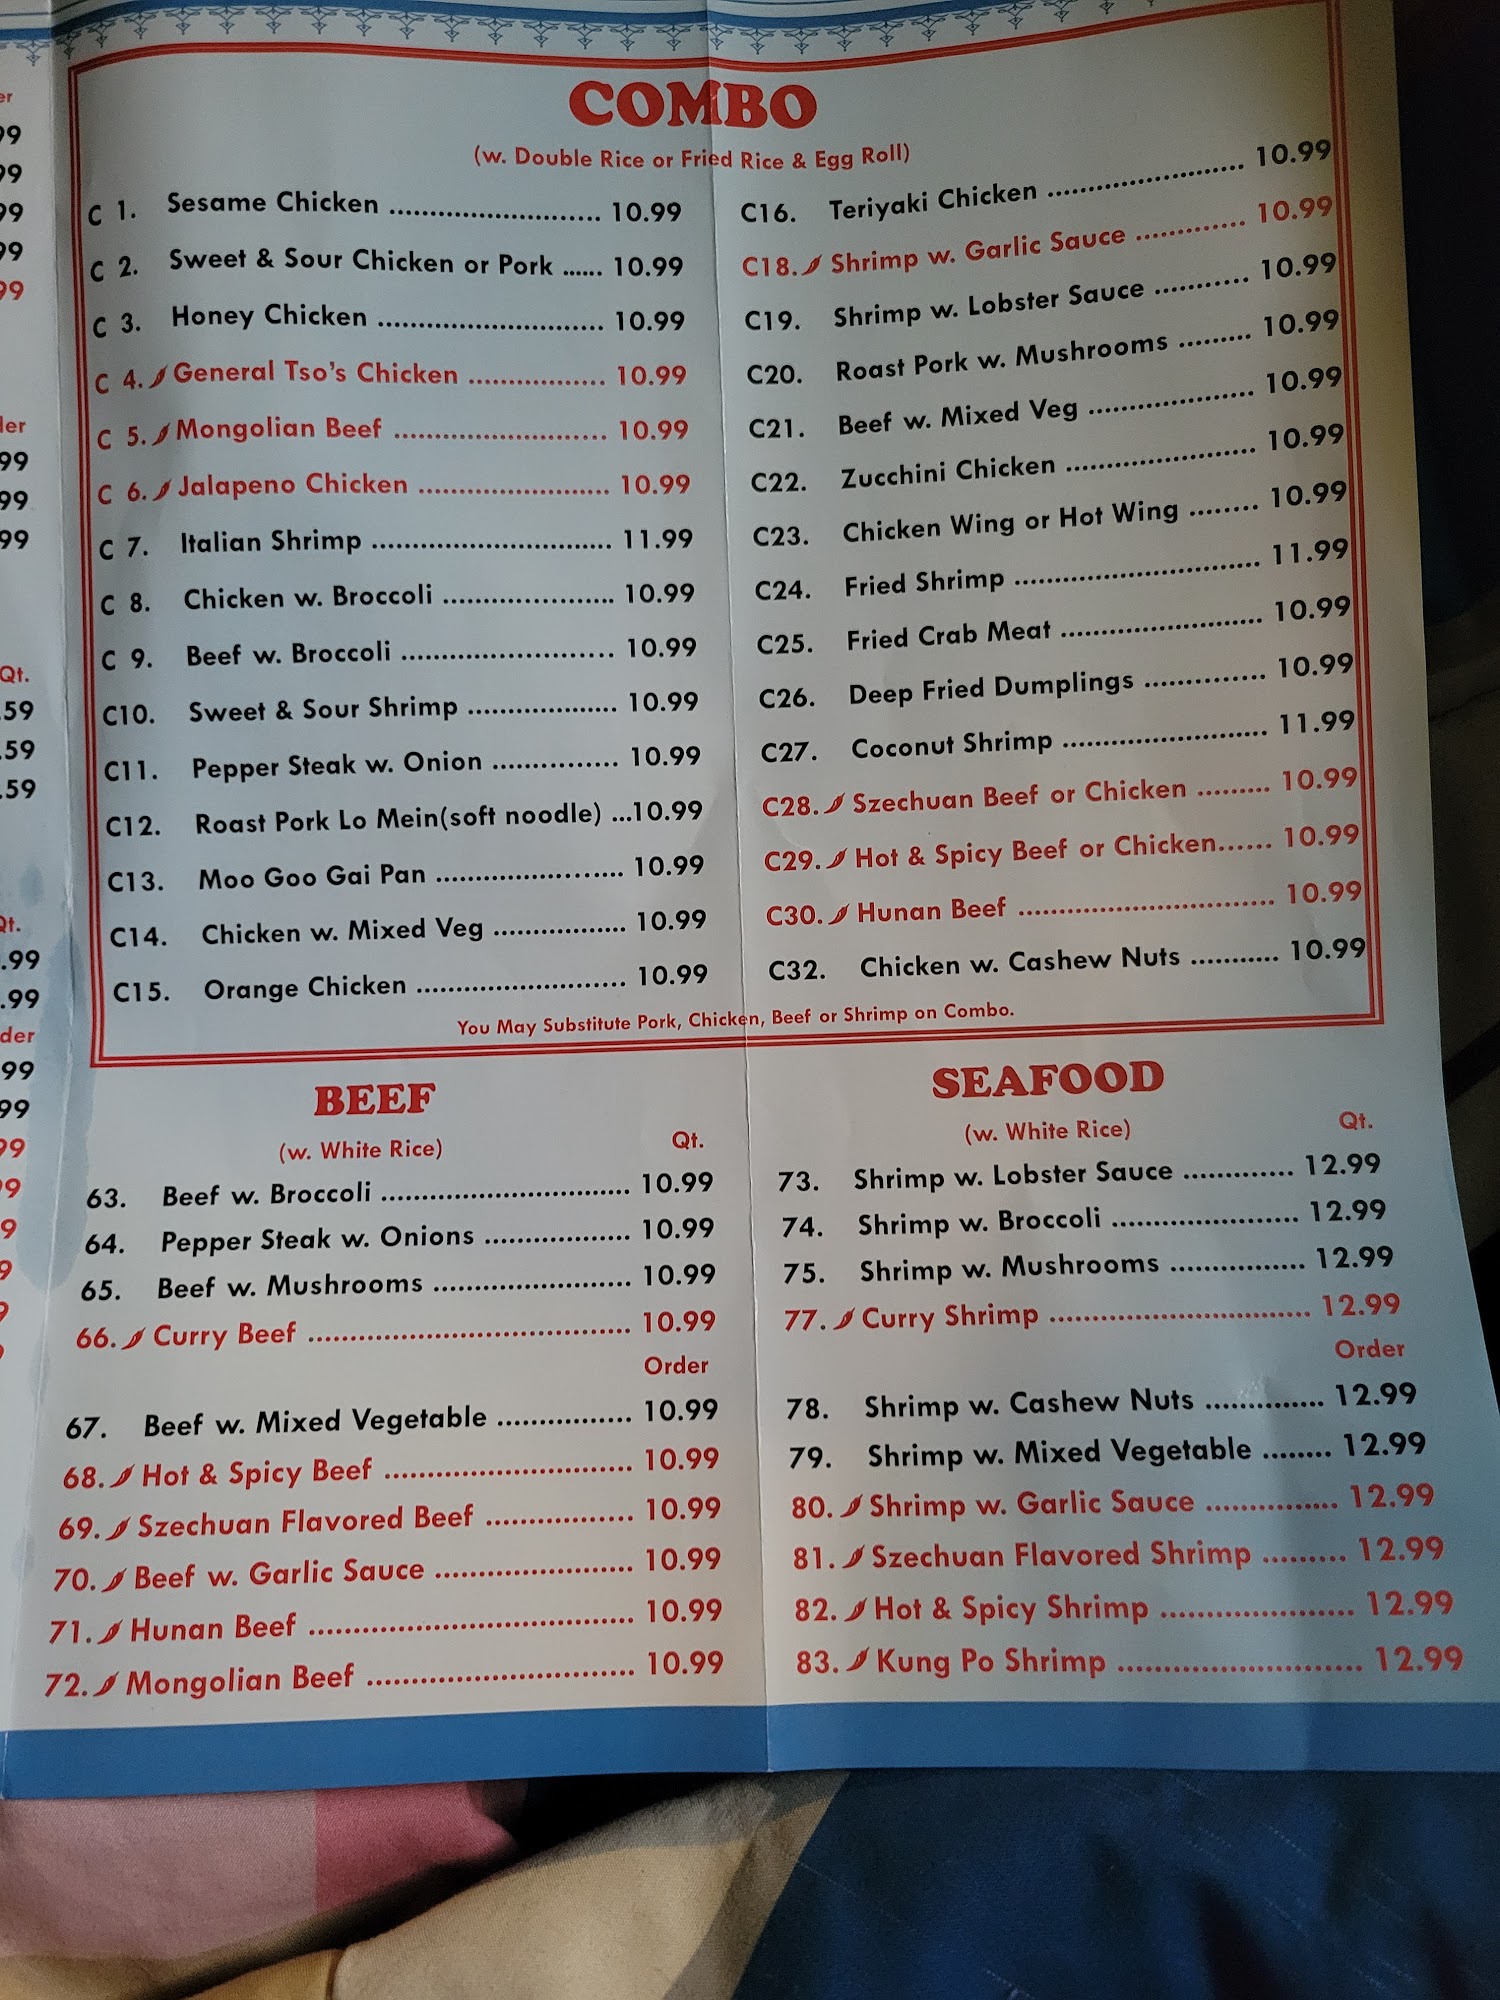 COMBO
(w. Double Rice or Fried Rice & Egg Roll)
C 1. Sesame Chicken ........................... 10.99
C 2. Sweet & Sour Chicken or Pork ...... 10.99
C 3. Honey Chicken ............................. 10.99
C 4. General Tso's Chicken ................. 10.99
C 5. Mongolian Beef ........................... 10.99
C 6. Jalapeno Chicken ........................ 10.99
C 7. Italian Shrimp .............................. 11.99
C 8. Chicken w. Broccoli ...................... 10.99
C 9. Beef w. Broccoli ........................... 10.99
C10. Sweet & Sour Shrimp ................... 10.99
C11. Pepper Steak w. Onion ................ 10.99
C12. Roast Pork Lo Mein(soft noodle) ...10.99
C13. Moo Goo Gai Pan ........................ 10.99
C14. Chicken w. Mixed Veg ................. 10.99
C15. Orange Chicken .......................... 10.99
C16. Teriyaki Chicken ......................... 10.99
C18. Shrimp w. Garlic Sauce ............. 10.99
C19. Shrimp w. Lobster Sauce ........... 10.99
C20. Roast Pork w. Mushrooms ......... 10.99
C21. Beef w. Mixed Veg ..................... 10.99
C22. Zucchini Chicken ........................ 10.99
C23. Chicken Wing or Hot Wing ........ 10.99
C24. Fried Shrimp ............................... 11.99
C25. Fried Crab Meat ......................... 10.99
C26. Deep Fried Dumplings ............... 10.99
C27. Coconut Shrimp .......................... 11.99
C28. Szechuan Beef or Chicken ......... 10.99
C29. Hot & Spicy Beef or Chicken...... 10.99
C30. Hunan Beef ................................ 10.99
C32. Chicken w. Cashew Nuts ........... 10.99
You May Substitute Pork, Chicken, Beef or Shrimp on Combo.
BEEF
(w. White Rice) Qt.
63. Beef w. Broccoli ............................... 10.99
64. Pepper Steak w. Onions .................. 10.99
65. Beef w. Mushrooms ........................ 10.99
66. Curry Beef ....................................... 10.99
Order
67. Beef w. Mixed Vegetable ................ 10.99
68. Hot & Spicy Beef ............................. 10.99
69. Szechuan Flavored Beef ................. 10.99
70. Beef w. Garlic Sauce ...................... 10.99
71. Hunan Beef ..................................... 10.99
72. Mongolian Beef .............................. 10.99
SEAFOOD
(w. White Rice) Qt.
73. Shrimp w. Lobster Sauce ............. 12.99
74. Shrimp w. Broccoli ...................... 12.99
75. Shrimp w. Mushrooms ................ 12.99
77. Curry Shrimp .............................. 12.99
Order
78. Shrimp w. Cashew Nuts .............. 12.99
79. Shrimp w. Mixed Vegetable ........ 12.99
80. Shrimp w. Garlic Sauce ............... 12.99
81. Szechuan Flavored Shrimp ......... 12.99
82. Hot & Spicy Shrimp ...................... 12.99
83. Kung Po Shrimp ........................... 12.99